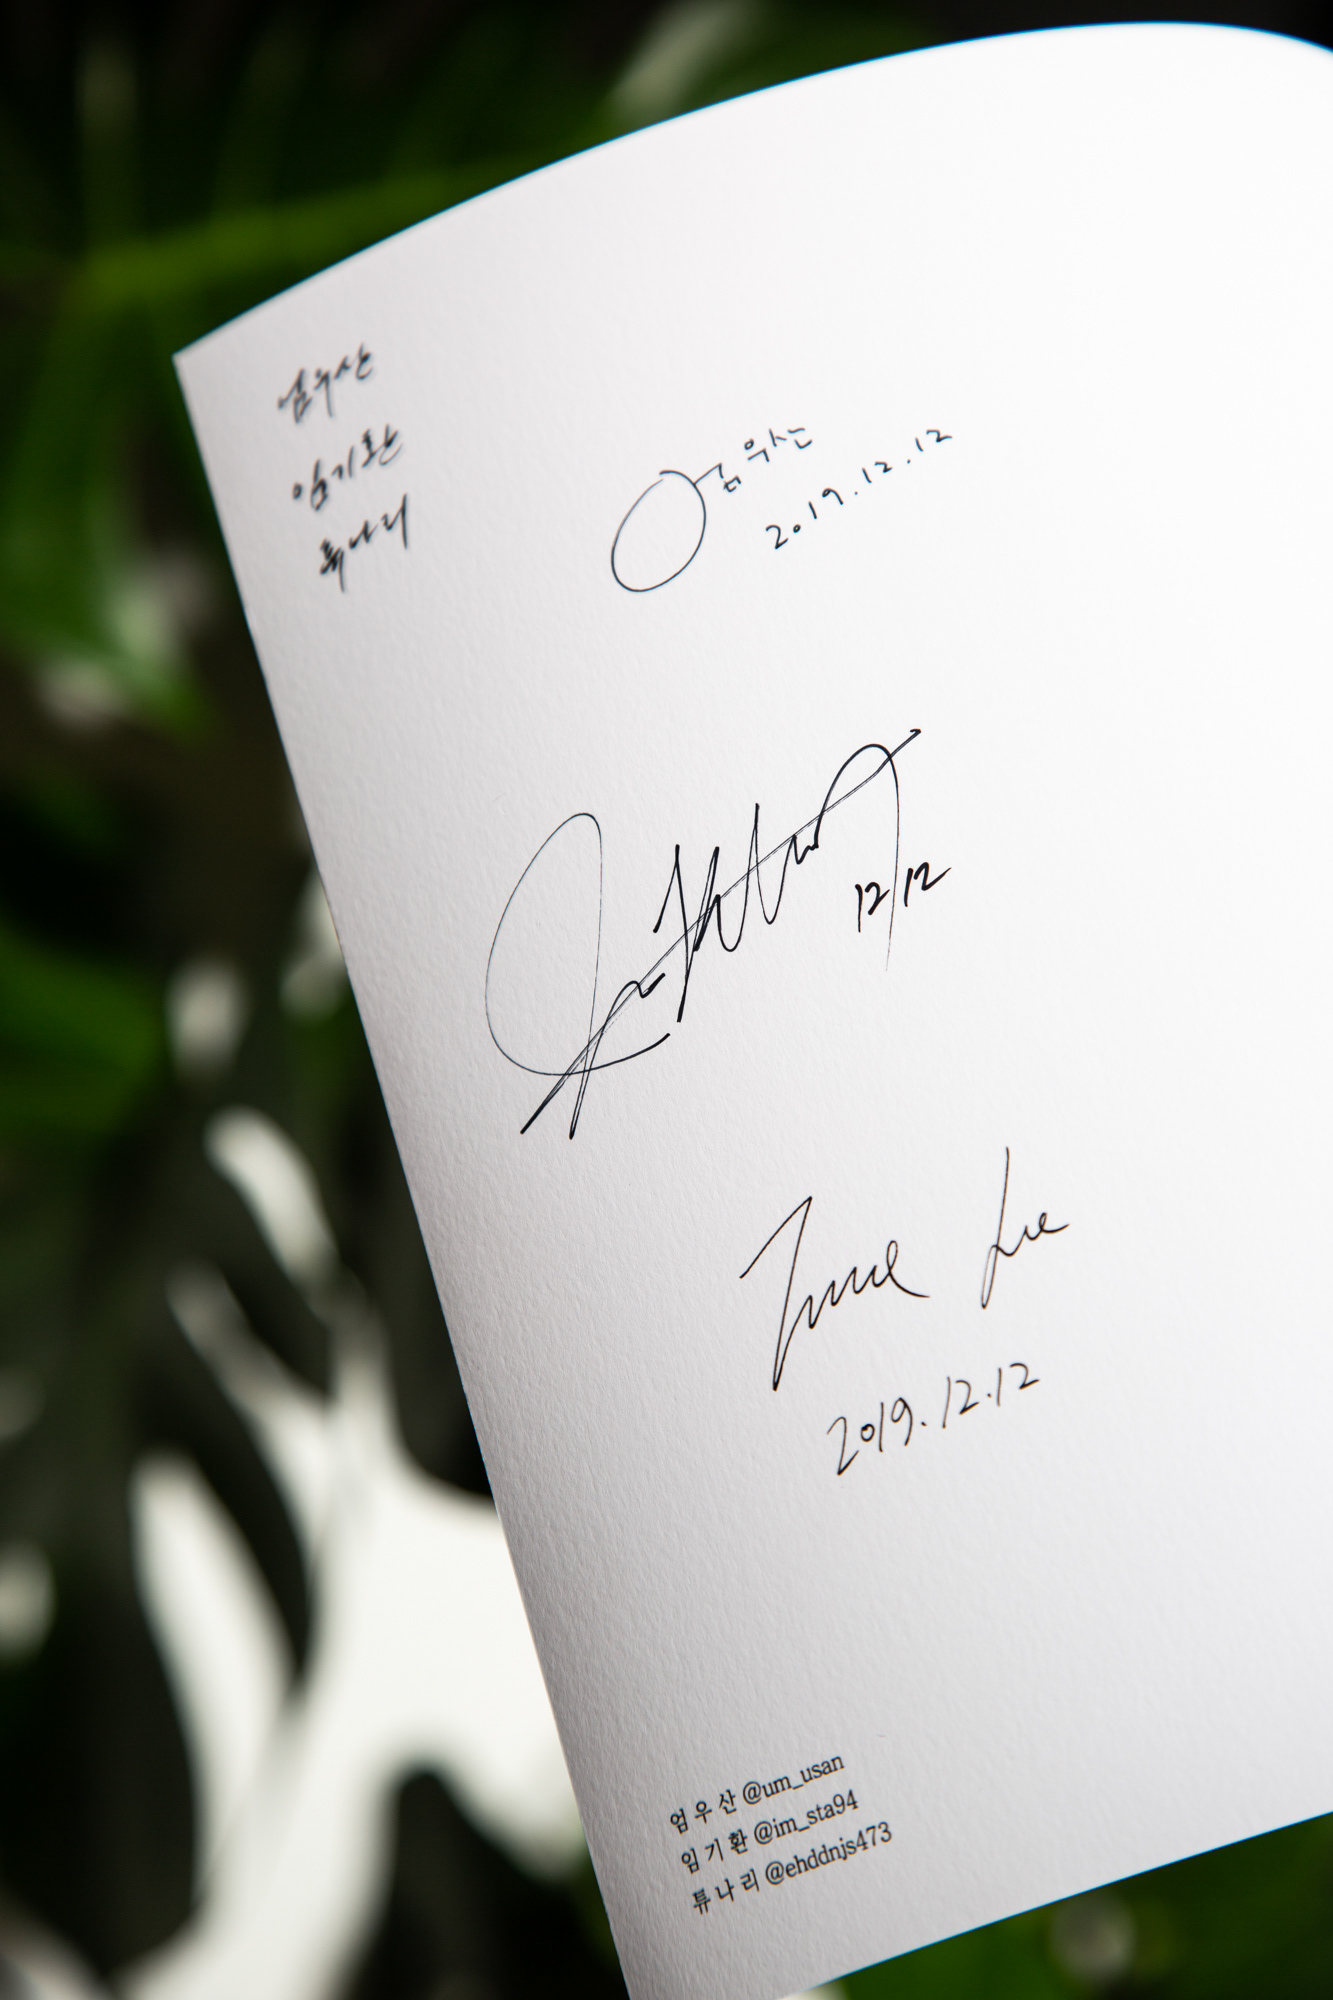 엄우산
임기환
류나리
엄우산
2019.12.12
12/12
2019.12.12
엄우산 @um_usan
임기환 @im_sta94
류나리 @ehddnjs473